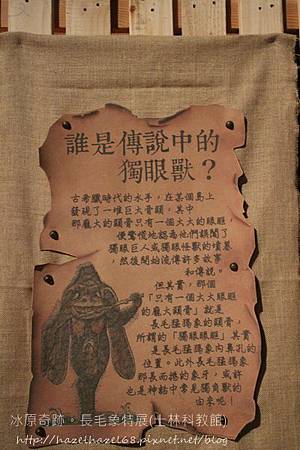 誰是傳說中的
獨眼獸？
古希臘時代的水手，在某個島上
發現了一堆巨大骨頭，其中
那龐大的頭骨只有一個大大的眼眶，
便驚慌地認為他們誤闖了
獨眼巨人或獨眼怪獸的墳墓
，然後開始流傳許多故事
和傳說。
但其實，那個
「只有一個大大眼眶
的龐大頭骨」就是
長毛猛獁象的頭骨，
所謂的「獨眼眼眶」其實
是長毛猛獁象內鼻孔的
位置。此外長毛猛獁象
那長而捲的象牙，或許
也是神話中常見獨角獸的
由來呢！
冰原奇跡。長毛象特展(士林科教館)
http://hazelhazel68.pixnet.net/blog